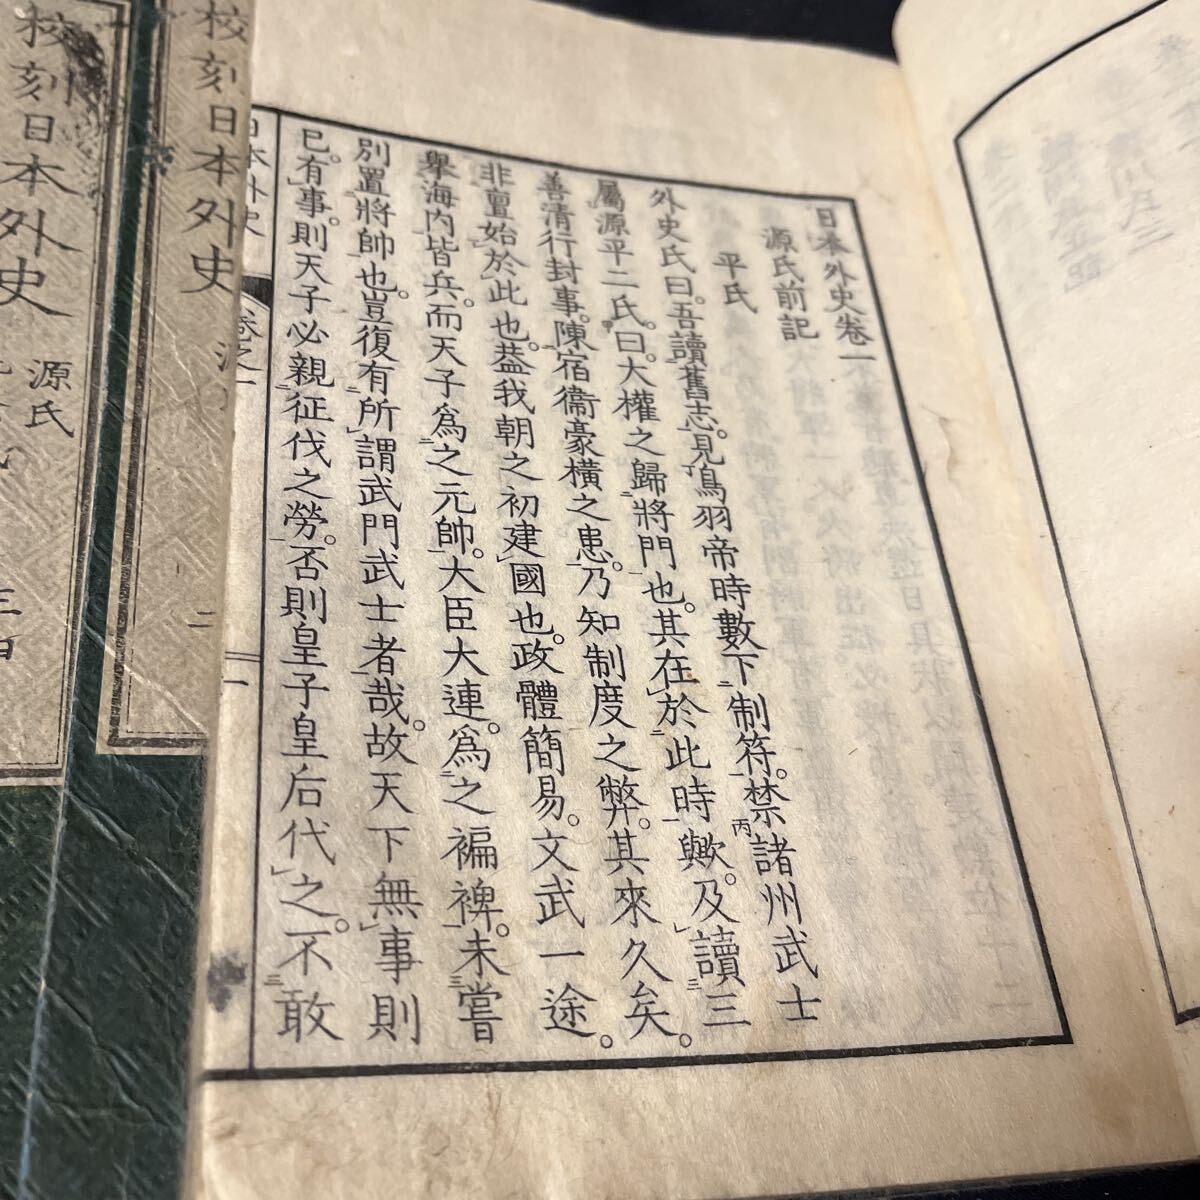 日本外史卷一
源氏前記
平氏
外史氏曰。吾讀舊志。見鳥羽帝時數下制符。禁諸州武士
屬源平二氏。曰。大權之歸將門也。其在於此時歟。及讀三
善清行封事。陳宿衞豪橫之患。乃知制度之弊。其來久矣。
非亶始於此也。葢我朝之初建國也。政體簡易。文武一途。
舉海内皆兵。而天子爲之元帥。大臣大連。爲之褊裨。未嘗
別置將帥也。豈復有所謂武門武士者哉。故天下無事則
已。有事。則天子必親征伐之勞。否則皇子皇后代之。不敢
日本外史
卷之一
一
校刻日本外史
二
校刻日本外史
源氏
三